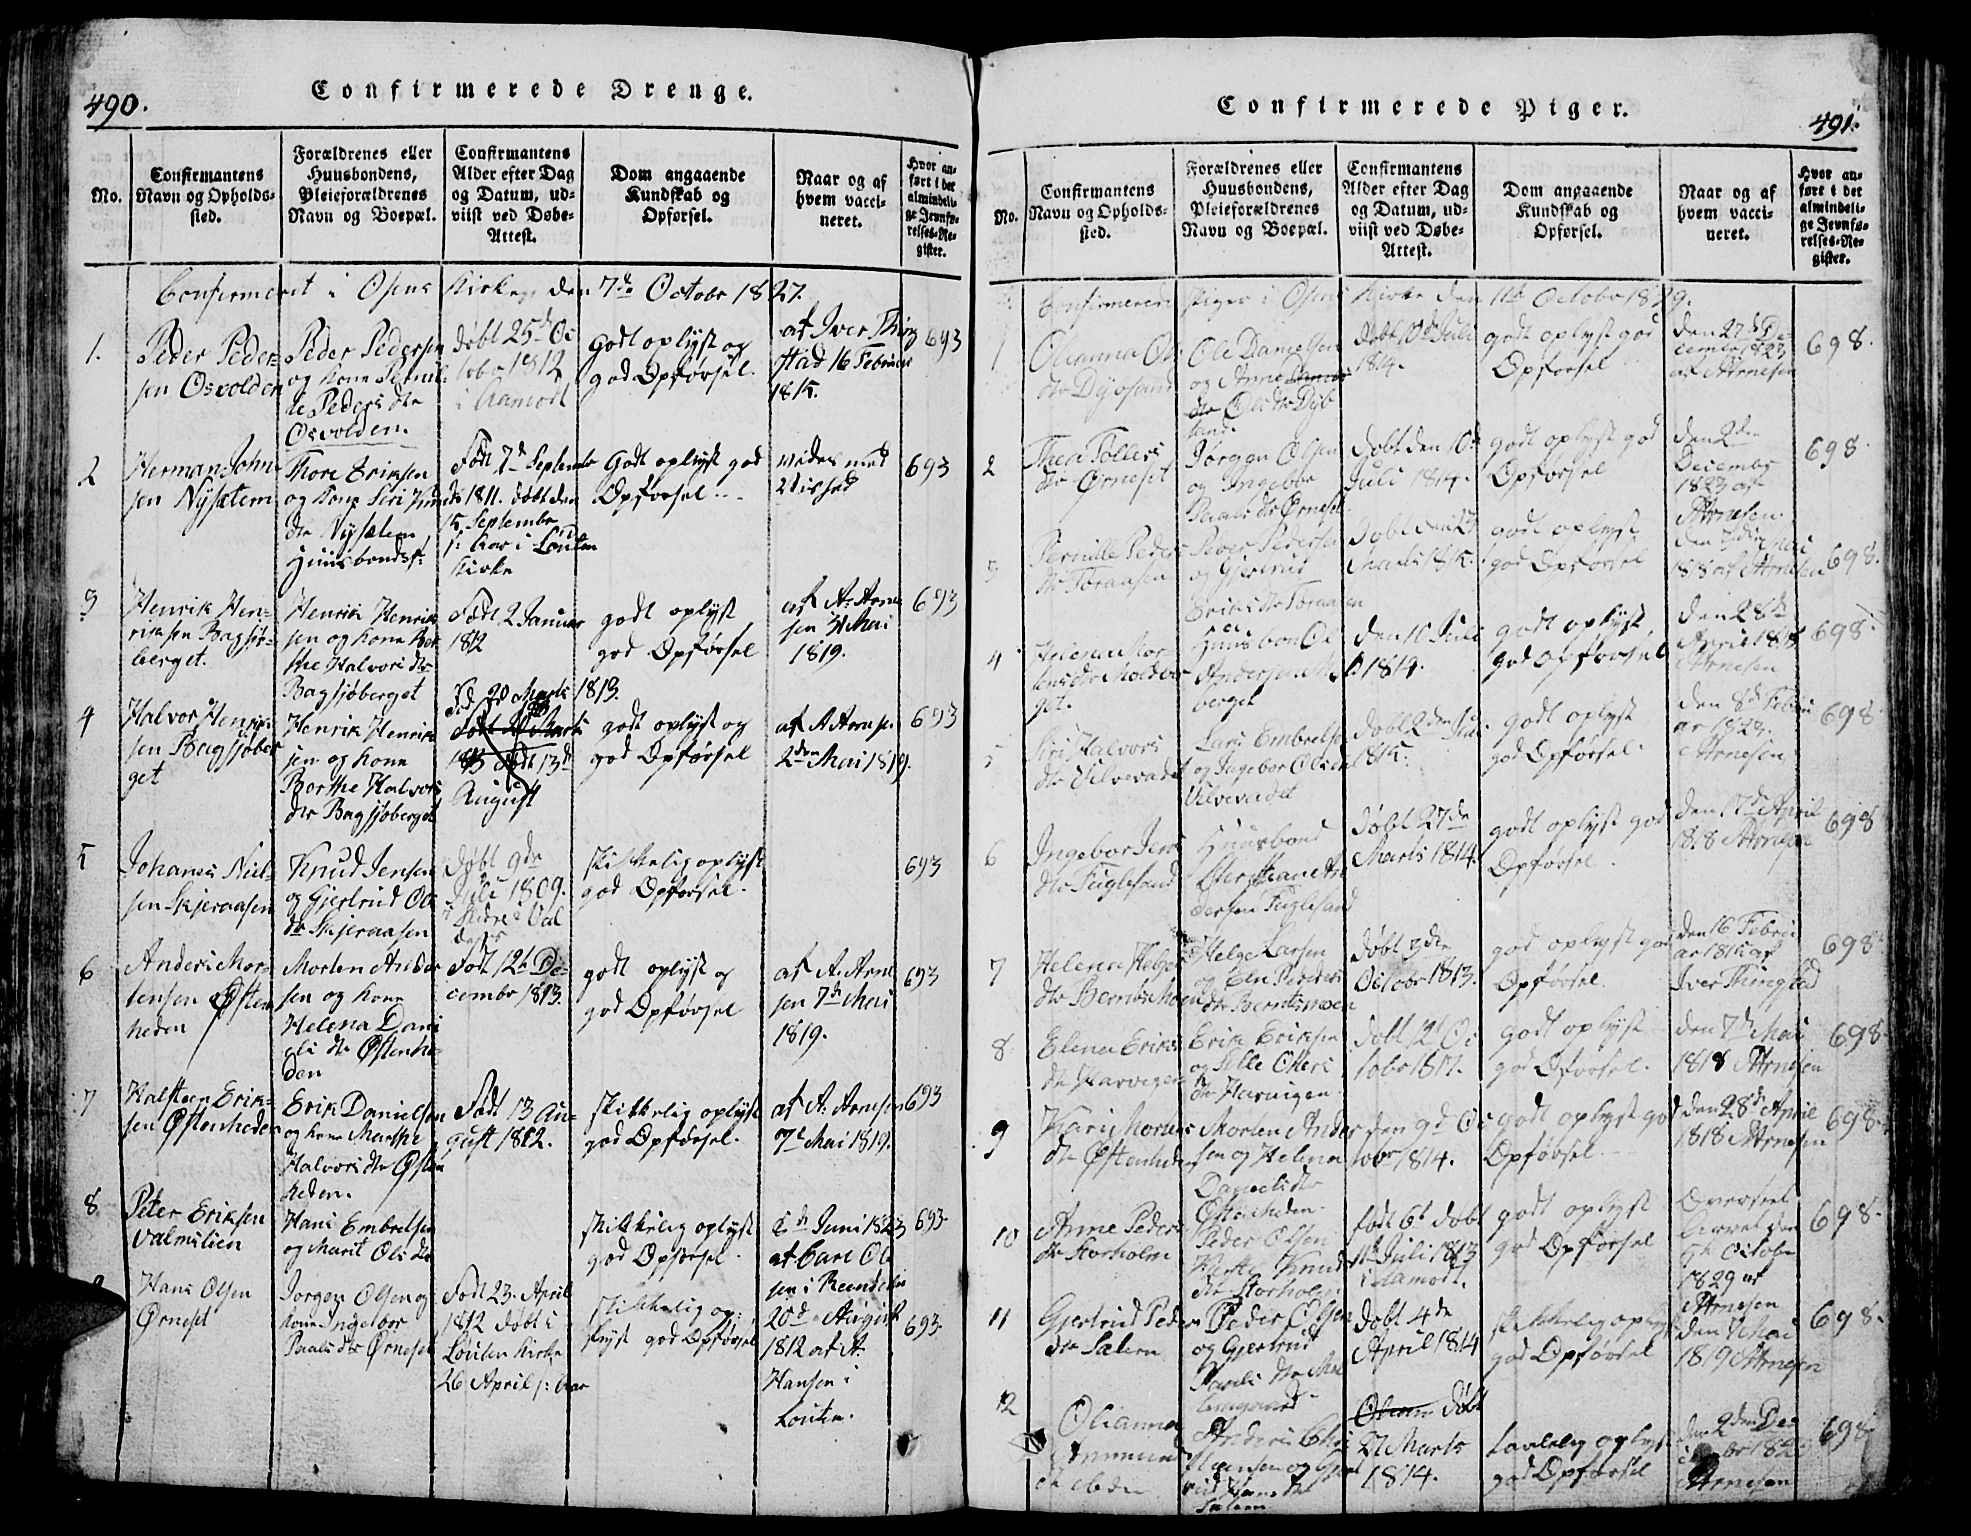 490.
Confirmerede Drenge.
No.
Confirmantens
Navn og Opholds-
sted.
Forældrenes eller
Huusbondens,
Pleieforældrenes
Navn og Boepæl.
Confirmantens
Alder efter Dag
og Datum, ud-
viist ved Døbe-
Attest.
Dom angaaende
Kundskab og
Opførsel.
Naar og af
hvem vacci-
neret.
Hvor an-
ført i det
almindeli-
ge Jevnfø-
relses-Re-
gister.
Confirmeret i Osens Kirke den 7de Octobr 1827.
1.
Peder Peder-
sen Osvolden
Peder Pedersen
og Kone Pernil-
le Peders dtr
Osvolden.
døbt 25de Oc
tobr 1812
i Aamodt
Godt oplyst og
god Opførsel.
af Iver Thing
stad 16 Februar
1815.
693
2
Herman John-
sen Nysætern
Thore Eriksen
og Kone Siri
dtr Nysætern
Huusbondsf:
Født 7de Septembr
1811. døbt den
15 Septembr
Kirke
Godt oplyst god
Opførsel
vides med
Vished
693
3
Henrik Hen-
riksen Bagsjø-
berget.
Henrik Henrik
sen og Kone Ber
the Halvors dtr
Bagsjøberget
Født 2 Januar
1812
godt oplyst
god Opførsel
af A. Arne
sen Mai
1819.
693
4
Halvor Henrik-
sen Bagsjøber
get
Henrik Henrik
sen og Kone
Berthe Halvors
dtr Bagsjøberget
Fød 20 Marts 1813.
13de
August
godt oplyst og
god Opførsel
af A Arnesen
2den Mai 1819.
693
5
Johanes Niel-
sen Skjeraasen
Knud Jensen
og Gjertrud Ols
dtr Skjeraasen
Døbt 9de
Juli 1809.
skikkelig oplyst
god Opførsel.
693
6
Anders Mor-
tensen Østen
heden
Morten Ander
sen og Kone
Helena Dani
els dtr Østenhe-
den
Født 12te De-
cembr 1813.
godt oplyst og
god Opførsel
af A. Arne
sen 7de Mai
1819.
693
7
Halsteen Erik-
sen Østenheden
Erik Danielsen
og Kone Marthe
Halvors dtr Østen
heden.
Født 13 Au-
gust 1812.
skikkelig oplyst
god Opførsel.
af A. Arnesen
7de Mai 1819.
693
8.
Peter Eriksen
Valmilien
Hans Embretsen
og Marit Ols dtr
skikkelig oplyst
god Opførsel.
Juni 1823
af Carl Ol
sen i Reindalen
693.
Hans Olsen
Ørneset
Jorgen Olsen og
Kone Ingebor
Paals dtr Ørneset
Født 23. April
1812 døbt i
Louten Kirke
26 April
skikkelig op-
lyst god Opførsel
20de August
1812 af A.
Hansen i
Louten.
693.
491.
Confirmerede Piger.
No.
Confirmantens
Navn og Opholds-
sted.
Forældrenes eller
Huusbondens,
Pleieforældrenes
Navn og Boepæl.
Confirmantens
Alder efter Dag
og Datum, ud-
viist ved Døbe-
Attest.
Dom angaaende
Kundskab og
Opførsel.
Naar og af
hvem vacci-
neret.
Hvor an-
ført i det
almindeli-
ge Jevnfø-
relses-Re-
gister.
Confirmerede Piger i Osens Kirke den 11te Octobr 1829.
1
Olianna Ols
dtr Dybsand
Ole Danielsen
og Anne
dtr Ols dtr Dyb
sand.
døbt 10de Juli
1814.
godt oplyst god
Opførsel
den 27de De
cembr 1823
af Arnesen
698.
2
Thea Tollefs
dtr Ørneset
Jørgen Olsen
og Ingebor
Paals dtr Ørneset
Døbt den 10de
Juli 1814.
godt oplyst god
Opførsel
den 2den
Decembr
1823 af
Arnesen
698.
3
Pernille Peders
dtr Toraasen
Peder Pedersen
og Gjertrud
Eriks dtr Toraasen
Døbt den 27
Marts 1815.
godt oplyst
god Opførsel
den 7de Mai
1818 af Arnesen
698.
4
Helena Mor
tens dtr Moldber
get.
Huusbon Ole
Andersen
berget
den 10 Juli
1814.
godt oplyst,
god Opførsel
den 28de
April 1818
Arnesen
698.
5
Siri Halvors
dtr Ulvevadet
Lars Embretsen
og Ingebor Olsdtr
Ulvevadet
døbt 2den Ju
1815.
godt oplyst
god Opførsel.
den 8de Febru
ar 1823.
Arnesen
698.
6
Ingebor Jens
dtr Fuglesand
Huusbond
dersen Fuglesand
døbt 27de
Marts 1814.
godt oplyst god
Opførsel.
den 17de April
1818 Arnesen
698
7
Helena Helges
dtr Berntsmoen
Helge Larsen
og Elen Peders
dtr Berntsmoen
døbt 3de
October 1813.
god oplyst god
Opførsel.
den 16 Febru
ar 1815 af
Iver Thingstad
698.
8
Elena Eriks
dtr Harvigen
Erik Eriksen
og Sille Oters
dtr Harvigen.
døbt 12te Oc
tobr 1817.
godt oplyst
god Opførsel.
den 7de Mai
1818 Arnesen
698.
9
Kari Mortens
dtr Østenheden
Morten Ander
sen og Helena
Daniels dtr
Østenheden.
den 9de Oc
tobr 1814.
godt oplyst god
Opførsel.
den 28de April
1818 Arnesen
698.
10
Anne Peders
dtr Storholm
Peder Olsen
Knuds
dtr Storholm
født 6te døbt
11te Juli 1813
i Aamodt.
godt oplyst
god Opførsel
den
9de Octobr
1829 af
Arnesen
698.
11
Gjertrud Peders
dtr Sætern
Peder Olsen
og Gjertrud
døbt 4de
April 1814
skikkelig oplyst
god Opførsel
den Mai
1819 Arnesen
698.
12
Olianna
Anders
Sætern
døbt
27 Marts
1814.
taalelig oplyst
god Opførsel
den 9den De
Arnesen
698